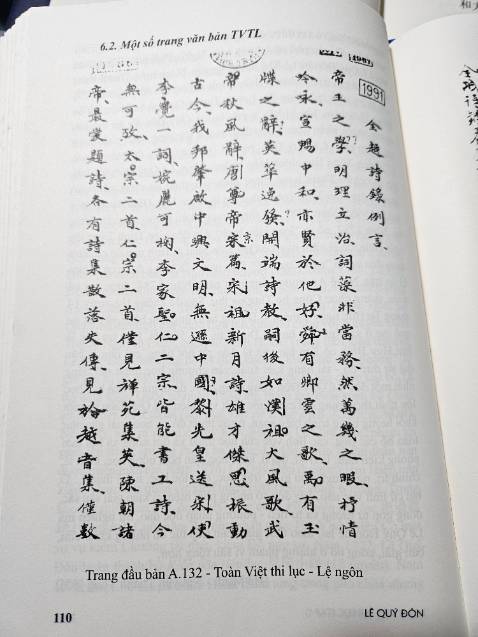 6.2. Một số trang văn bản TVTL
1991
全越詩錄例言
帝王之學明理立治詞藻非當務然萬幾之暇抒情
吟永宣賜中和亦賢於他好舜有卿雲之歌禹有玉
牒之辭英華逸發開端詩教嗣後如漢祖大風歌武
帝秋風辭唐尊帝京篇宋祖新月詩雄才傑思振動
古今我邦肇啟中興文明無遜中國黎先皇送宋使
李覺一詞婉麗可掬李家聖仁二宗皆能書工詩今
無可攷太宗二首仁宗二首僅見禪苑集英陳朝諸
帝最題詩各有詩集散落失傳見於越音集僅數
Trang đầu bản A.132 - Toàn Việt thi lục - Lệ ngôn
110
LÊ QUÝ ĐÔN